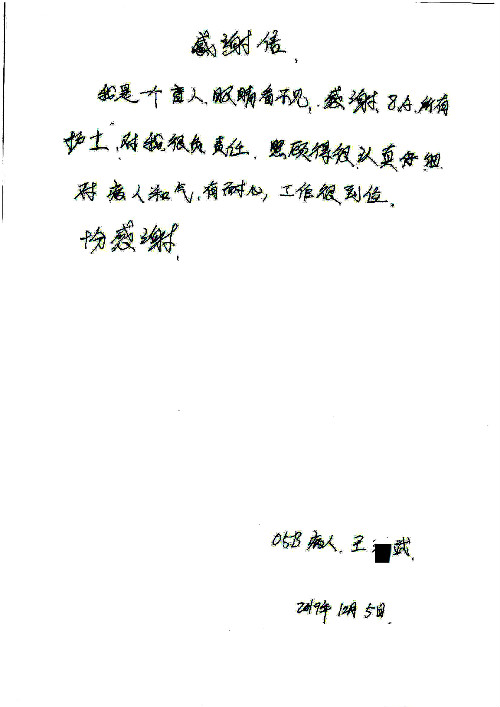 感谢信.
我是一个盲人,眼睛看不见,感谢8A所有
护士,对我很负责任.照顾得很认真仔细
对病人和气,有耐心,工作很到位.
十分感谢.
05B病人.王 武.
2019年12月5日.